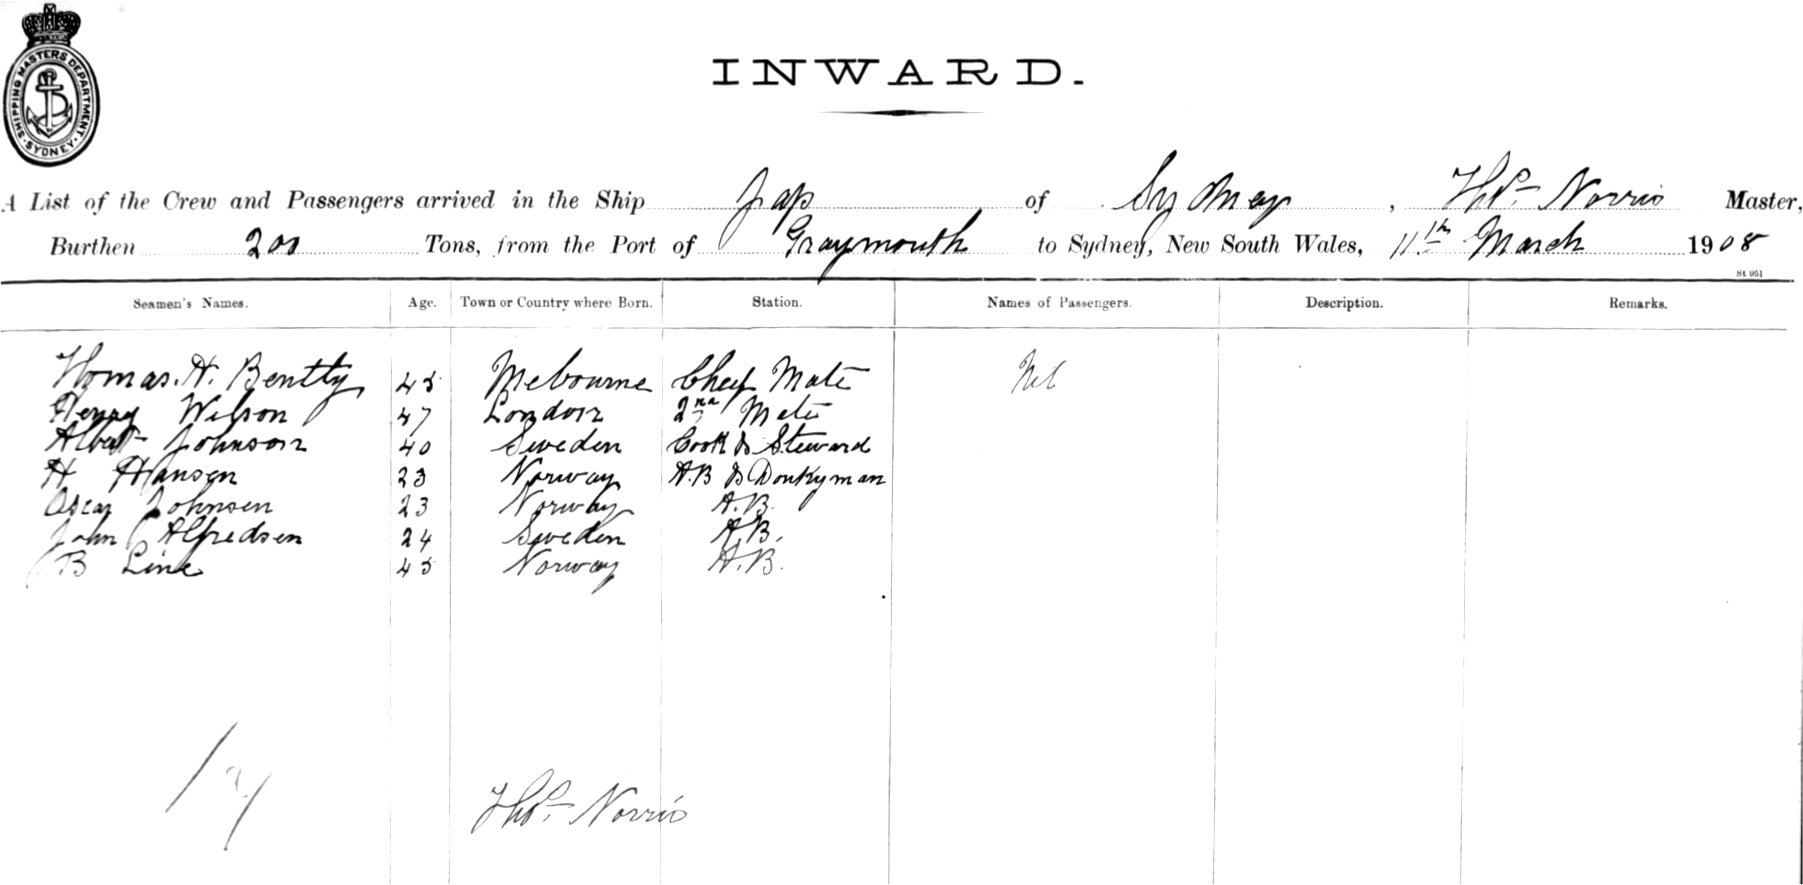 SHIPPING MASTERS DEPARTMENT · SYDNEY ·
INWARD.
A List of the Crew and Passengers arrived in the Ship Jap of Sydney, Thos. Norris Master,
Burthen 200 Tons, from the Port of Graymouth to Sydney, New South Wales, 11th March 1908
St 951
Seamen's Names. Age. Town or Country where Born. Station. Names of Passengers. Description. Remarks.
Thomas. H. Bentty 45 Mebourne Cheif Mate Nil
Henry Wilson 47 London 2nd Mate
Albert Johnson 40 Sweden Cook & Steward
H Hansen 23 Norway A.B & Donkyman
Oscar Johnsen 23 Norway A.B.
John Alfredsen 24 Sweden A.B.
B Line 45 Norway A.B.
Thos. Norris